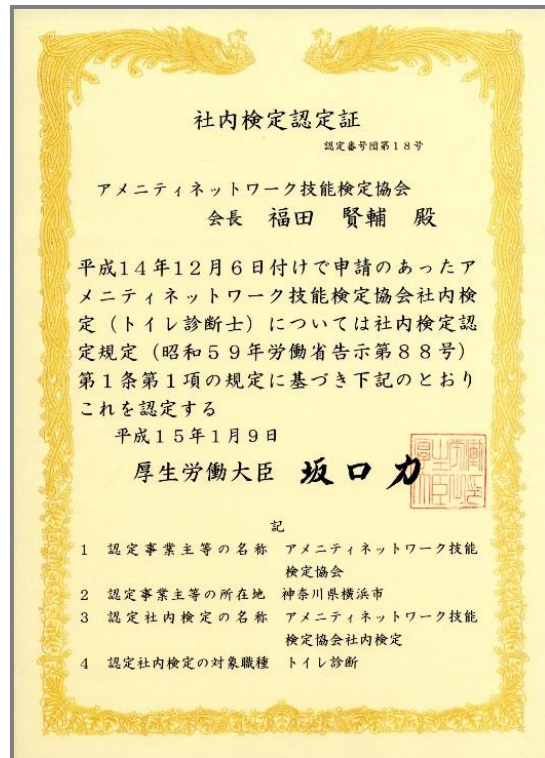 社内検定認定証
認定番号団第１８号
アメニティネットワーク技能検定協会
会長　福田　賢輔　殿
平成１４年１２月６日付けで申請のあったア
メニティネットワーク技能検定協会社内検
定（トイレ診断士）については社内検定認
定規定（昭和５９年労働省告示第８８号）
第１条第１項の規定に基づき下記のとおり
これを認定する
平成１５年１月９日
厚生労働大臣　坂口力
厚生労働大臣印
記
１　認定事業主等の名称　アメニティネットワーク技能
検定協会
２　認定事業主等の所在地　神奈川県横浜市
３　認定社内検定の名称　アメニティネットワーク技能
検定協会社内検定
４　認定社内検定の対象職種　トイレ診断